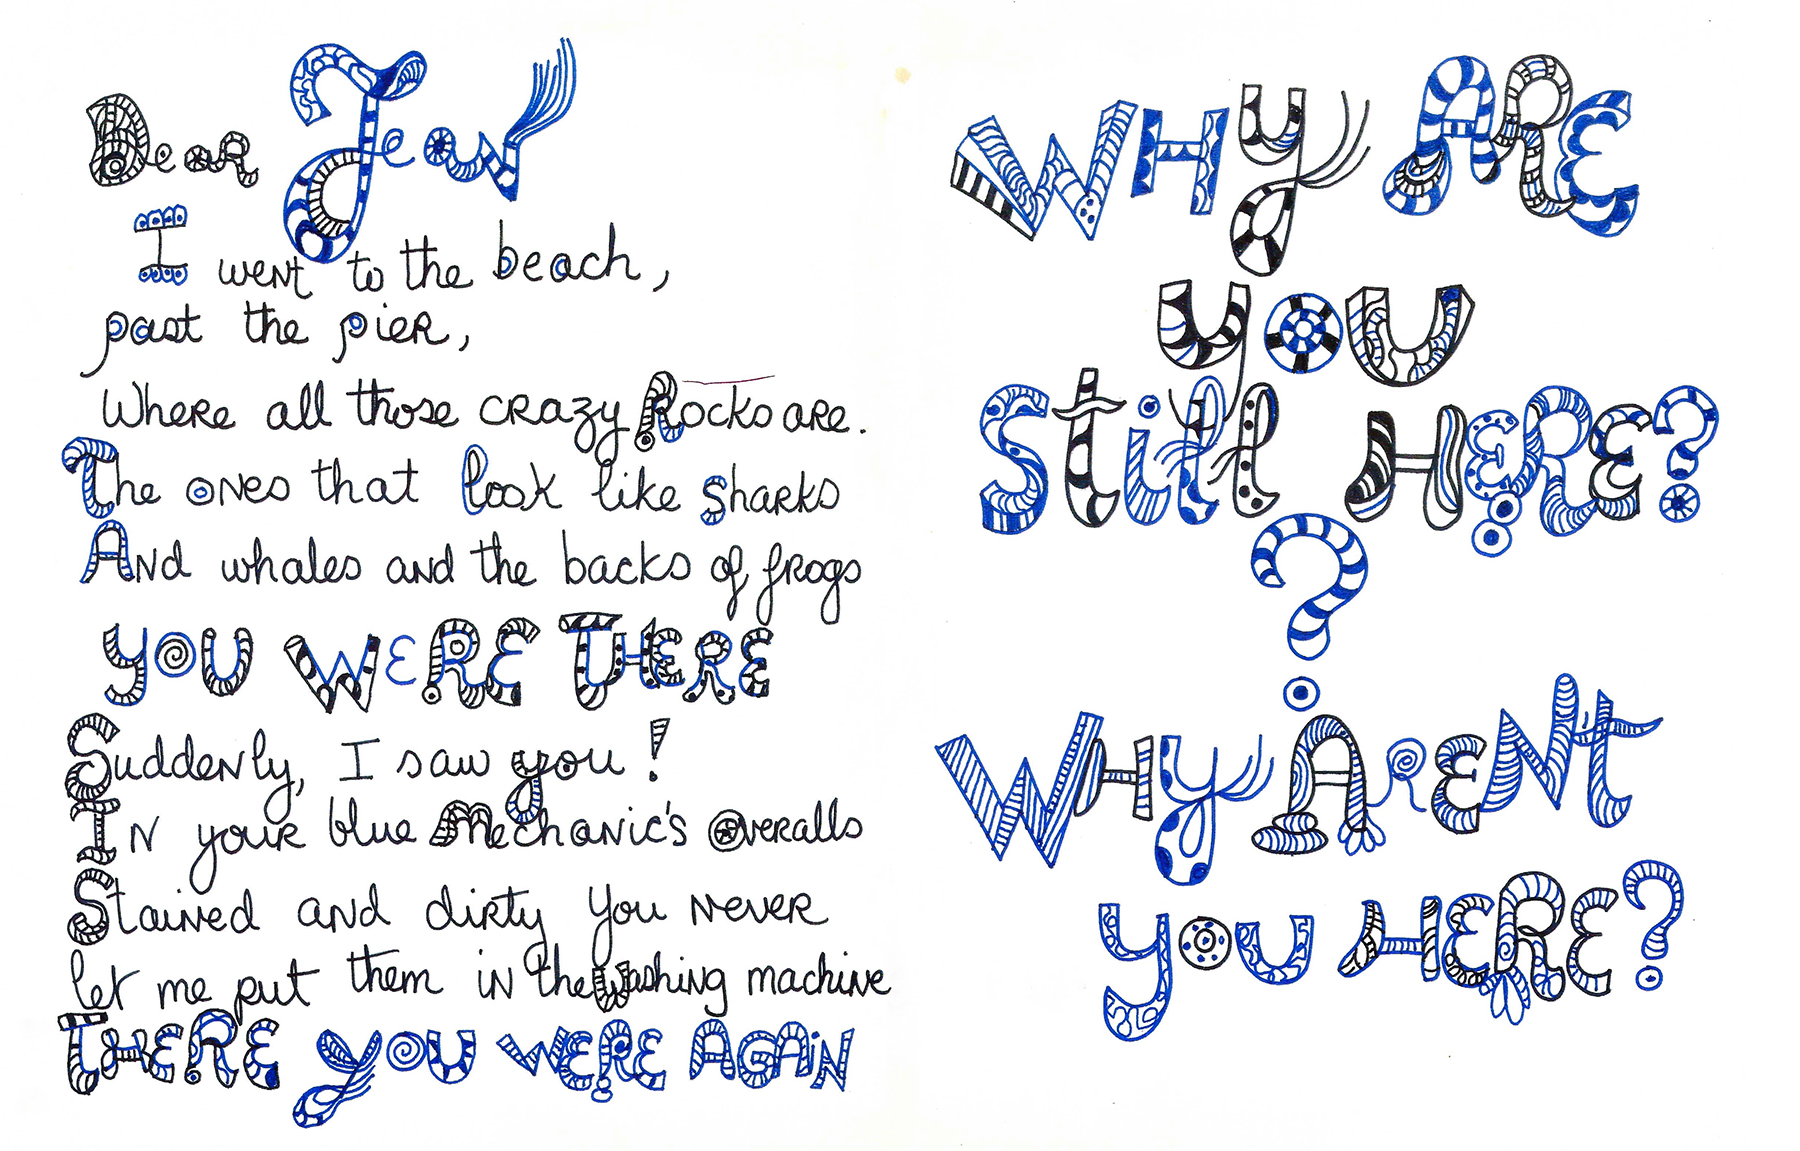 Dear Jean
I went to the beach,
past the pier,
Where all those crazy Rocks are.
The ones that look like sharks
And whales and the backs of frogs
YOU WERE THERE
Suddenly, I saw you!
In your blue Mechanic's Overalls
Stained and dirty you never
let me put them in the Washing machine
THERE YOU WERE AGAIN
WHY ARE
YOU
Still HERE?
?
WHY ARENt
YOU HERE?